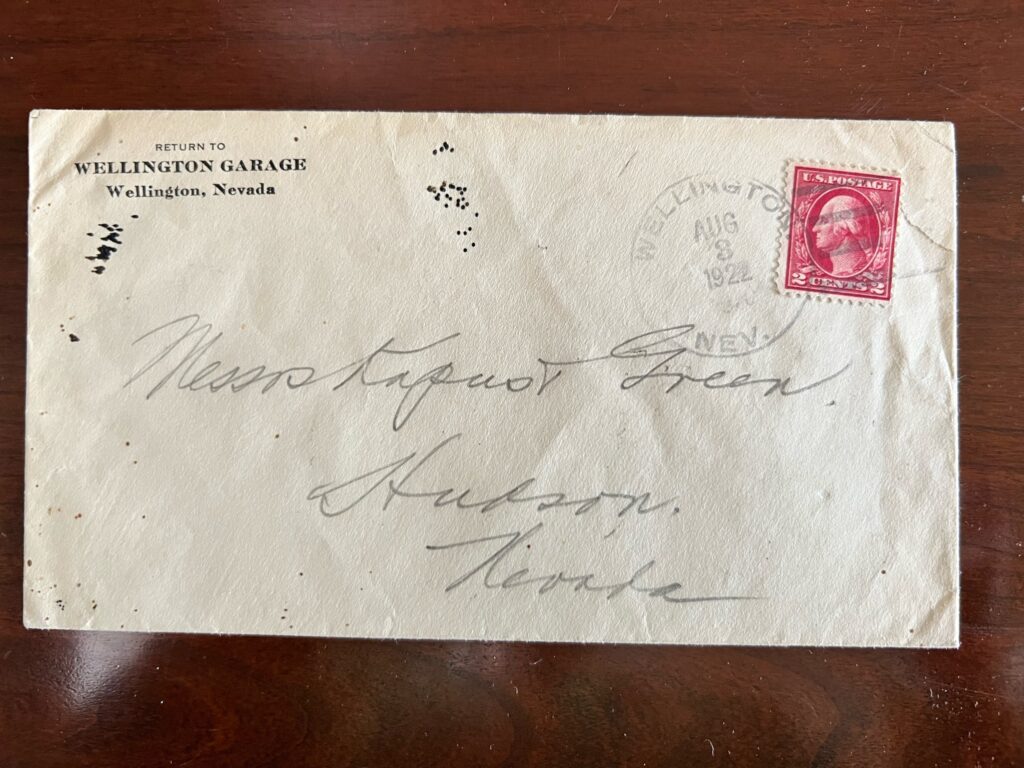 RETURN TO
WELLINGTON GARAGE
Wellington, Nevada
WELLINGTON
AUG
3
1922
NEV.
U.S. POSTAGE
2 CENTS 2
Messrs Kapust Green.
Hudson.
Nevada